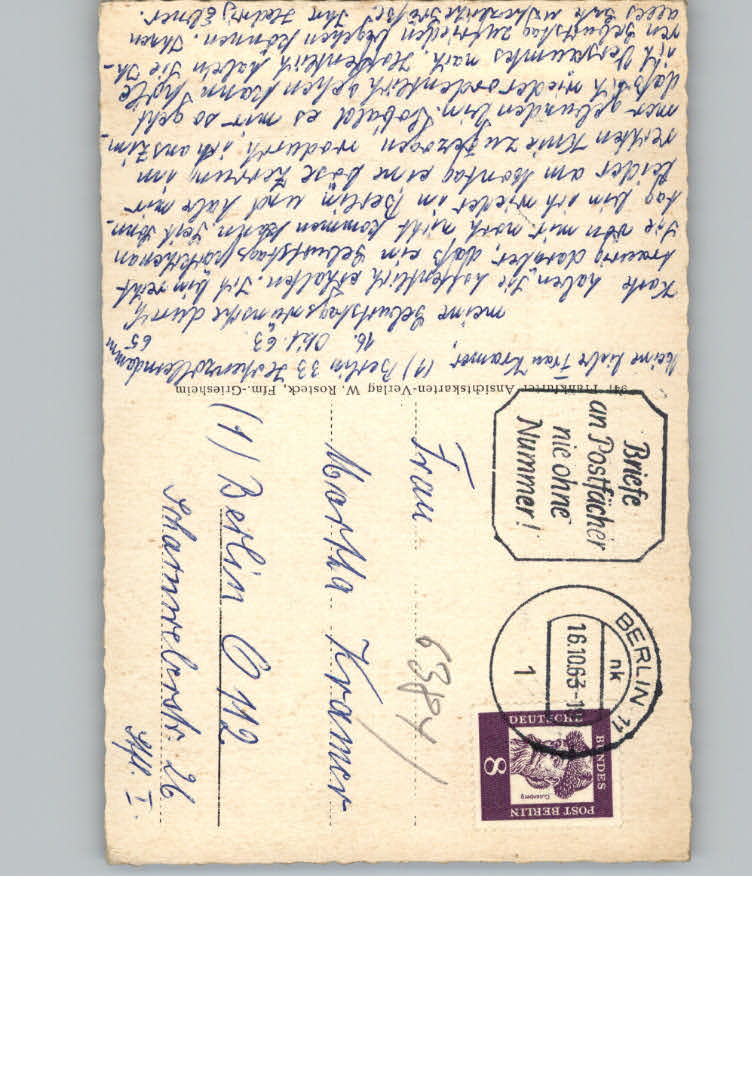 Meine liebe Frau Kramer, (1) Berlin 33 Hohenzollerndamm 65
16. Okt. 63
meine Geburtstagswünsche durch
Karte haben Sie hoffentlich erhalten. Ich bin recht
traurig darüber, daß ein Geburtstagspäckchen an
Sie von mir noch nicht kommen kann. Seit Sonn-
tag bin ich wieder in Berlin und habe mir
leider am Montag eine böse Zerrung im
rechten Knie zugezogen wodurch ich ans Zim-
mer gebunden bin. Sobald es mir so geht
daß ich wieder ordentlich gehen kann hole
ich Versäumtes nach. Hoffentlich haben Sie Ih-
ren Geburtstag zufrieden begehen können. Ihnen
alles Gute u. herzliche Grüße. Ihr
947 Frankfurter Ansichtskarten-Verlag W. Rosteck, Ffm.-Griesheim
Briefe
an Postfächer
nie ohne
Nummer!
BERLIN 11
nk
16.10.63-1
1
DEUTSCHE
BUNDES
POST BERLIN
8
Gutenberg
Frau
6384
Martha Kramer
(1) Berlin O 112
Scharnweberstr. 26
Stfl. I.